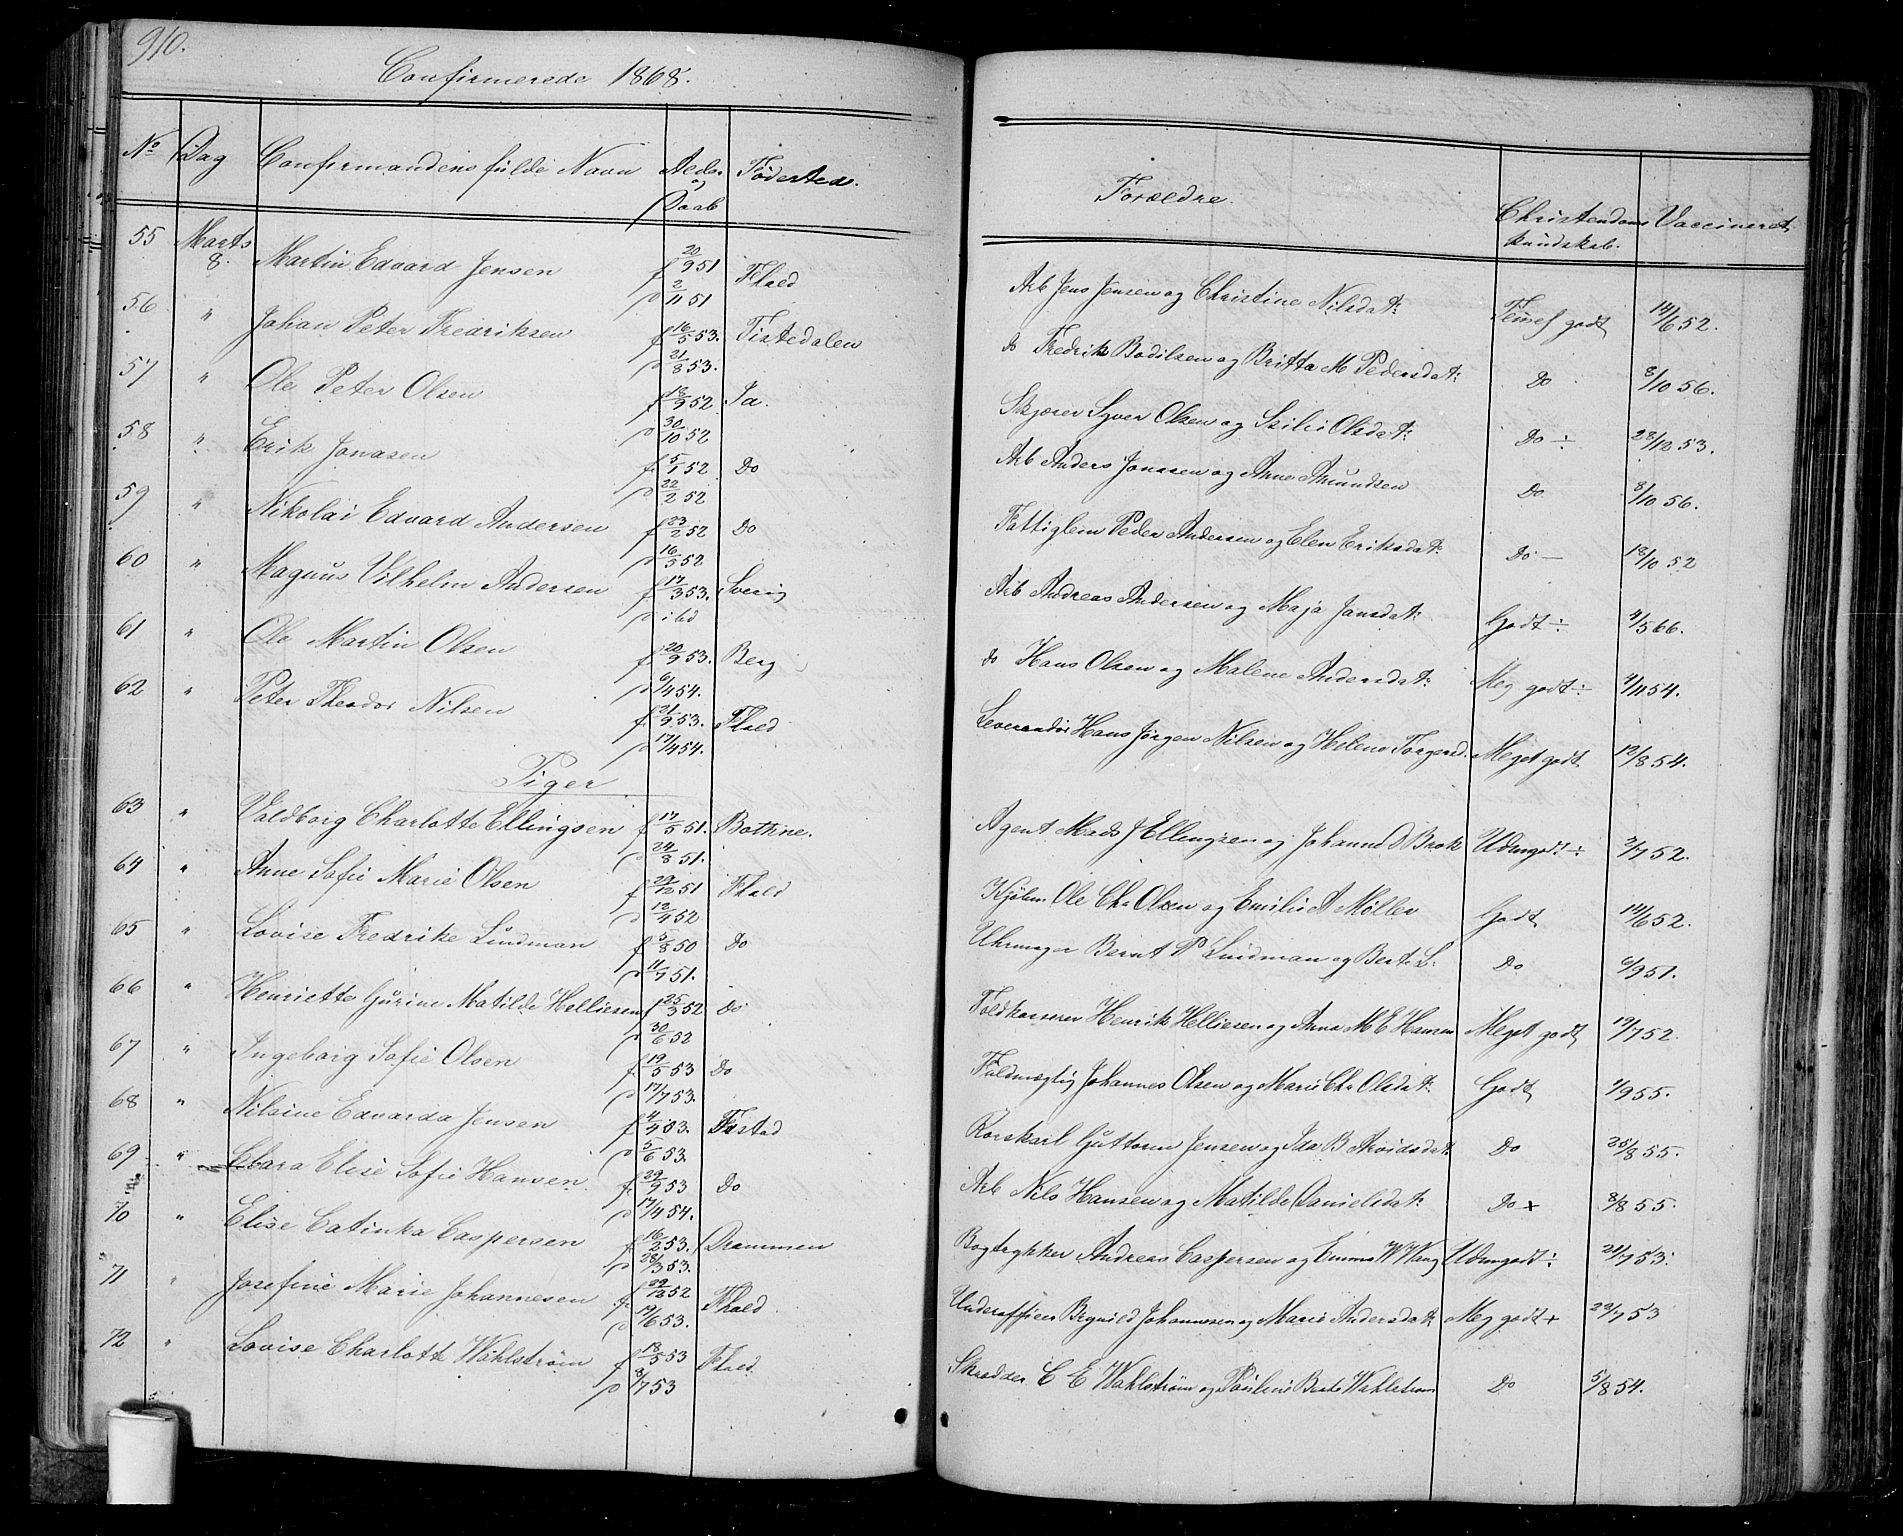 910.
Confirmerede 1868.
No Dag Confirmandens fulde Navn Alder og Daab Fødested.
Forældre.
Christendoms kundskab. Vaccineret
55 Marts 8. Martin Edvard Jensen f 20/9 51 d 2/11 51 Fhald Arb Jens Jensen og Christine Nilsdat: Temel godt 14/6 52.
56 " Johan Peter Fredriksen f 16/5 53. d 21/8 53. Tistedalen do Fredrik Bodilsen og Britta M Pedersdat: Do 8/10 56.
57 " Ole Peter Olsen f 18/9 52 d 30/10 52 Sa. Skjærer Syver Olsen og Olsdat: Do ÷ 28/12 53.
58 " Erik Jonasen f 5/1 52 d 22/2 52 Do Arb Anders Jonasen og Anne Amundsen Do 8/10 56.
59 " Nikolai Edvard Andersen f 23/2 52 d 16/5 52 Do Fattiglem Peder Andersen og Elen Eriksdat: Do — 18/10 52
60 " Magnus Vilhelm Andersen f 17/3 53. d ibd Sverig Arb Andreas Andersen og Maja Jansdat: Godt ÷ 4/5 66.
61 " Ole Martin Olsen f 20/9 53. d 6/1 54. Berg do Hans Olsen og Malene Andersdat: Meg godt ÷ 4/11 54.
62 " Peter Theodor Nilsen f 21/9 53. d 17/4 54. Fhald Leverandør Hans Jørgen Nilsen og Helene Torgersd. Meget godt 12/8 54.
Piger
63 " Valdborg Charlotte Ellingsen f 17/5 51. d 24/8 51. Bothne. Agent Mads J Ellingsen og Johanne D Brok Udmgodt ÷ 2/7 52.
64 " Anne Sofie Marie Olsen f 29/12 51 d 12/4 52 Fhald Kjøbm Ole Chr Olsen og Emilie A Møller Godt 14/6 52.
65 " Lovise Fredrike Lindman f 5/8 50 d 11/7 51. Do Uhrmager Bernt P Lindman og Berte L: Do 6/9 51.
66 " Henriette Gurine Matilde Helliesen f 25/3 52 d 30/6 52 Do Toldkasserer Henrik Helliesen og Anna M E Hansen Meget godt 19/7 52.
67 " Ingeborg Sofie Olsen f 19/5 53 d 17/7 53. Do Fuldmægtig Johannes Olsen og Marie Chr Olsdat: Godt 1/9 55.
68 " Nilsine Edvarda Jensen f 4/4 03. d 5/6 53. Tistad Korskarl Guttorm Jensen og Ida B Arvidsdat: Do 25/8 55.
69 " Clara Elise Sofie Hansen f 29/9 53 d 17/4 54. Do Arb Nils Hansen og Matilde Danielsdat: Do + 8/8 55.
70 " Elise Catinka Caspersen f 16/2 53. d 28/3 53. Drammen Bogtrykker Andreas Caspersen og Emma W Wang Udmgodt ÷ 21/7 53.
71 " Josefine Marie Johannesen f 29/12 52 d 19/6 53. Fhald. Underofficer Johannesen og Marie Andersdat: Meg godt + 29/7 53
72 " Lovise Charlotte Wahlstrøm f 18/5 53 d 3/7 53 Fhald. Skrædder C E Wahlstrøm og Pauline Berte Wahlstrøm Do 5/8 54.